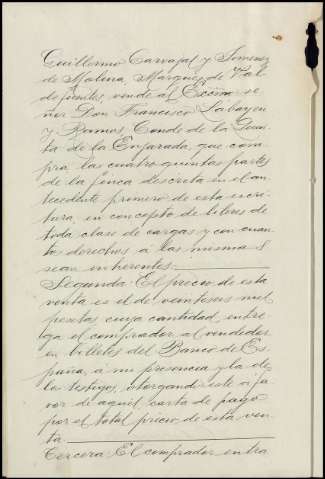 Guillermo Carvajal y Jimenez
de Molina, Marques de Val-
defuentes, vende al Excmo. Se-
ñor Don Francisco Labayen
y Ramos, Conde de la Quin-
ta de la Enjarada, que com-
pra, las cuatro quintas partes
de la finca descrita en el an-
tecedente primero de esta escri-
tura, en concepto de libres de
toda clase de cargas y con cuan-
tos derechos á las mismas
sean inherentes.
Segunda: El precio de esta
venta es el de veintiseis mil
pesetas cuya cantidad, entre-
ga el comprador al vendedor
en billetes del Banco de Es-
paña, á mi presencia y la de
los testigos, otorgando este á fa-
vor de aquel, carta de pago
por el total precio de esta ven-
ta.
Tercera: El comprador entra